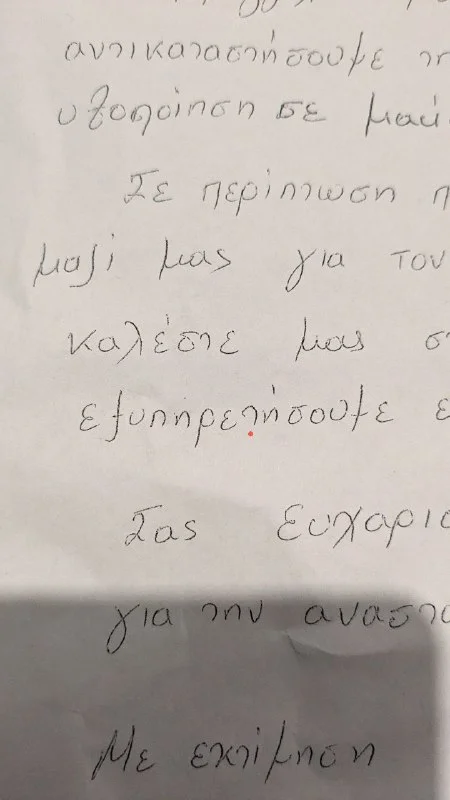 αντικαταστήσουμε τη
υλοποίηση σε μαύ
Σε περίπτωση π
μαζί μας για τον
καλέστε μας στ
εξυπηρετήσουμε ε
Σας ευχαρισ
για την αναστα
Με εκτίμηση